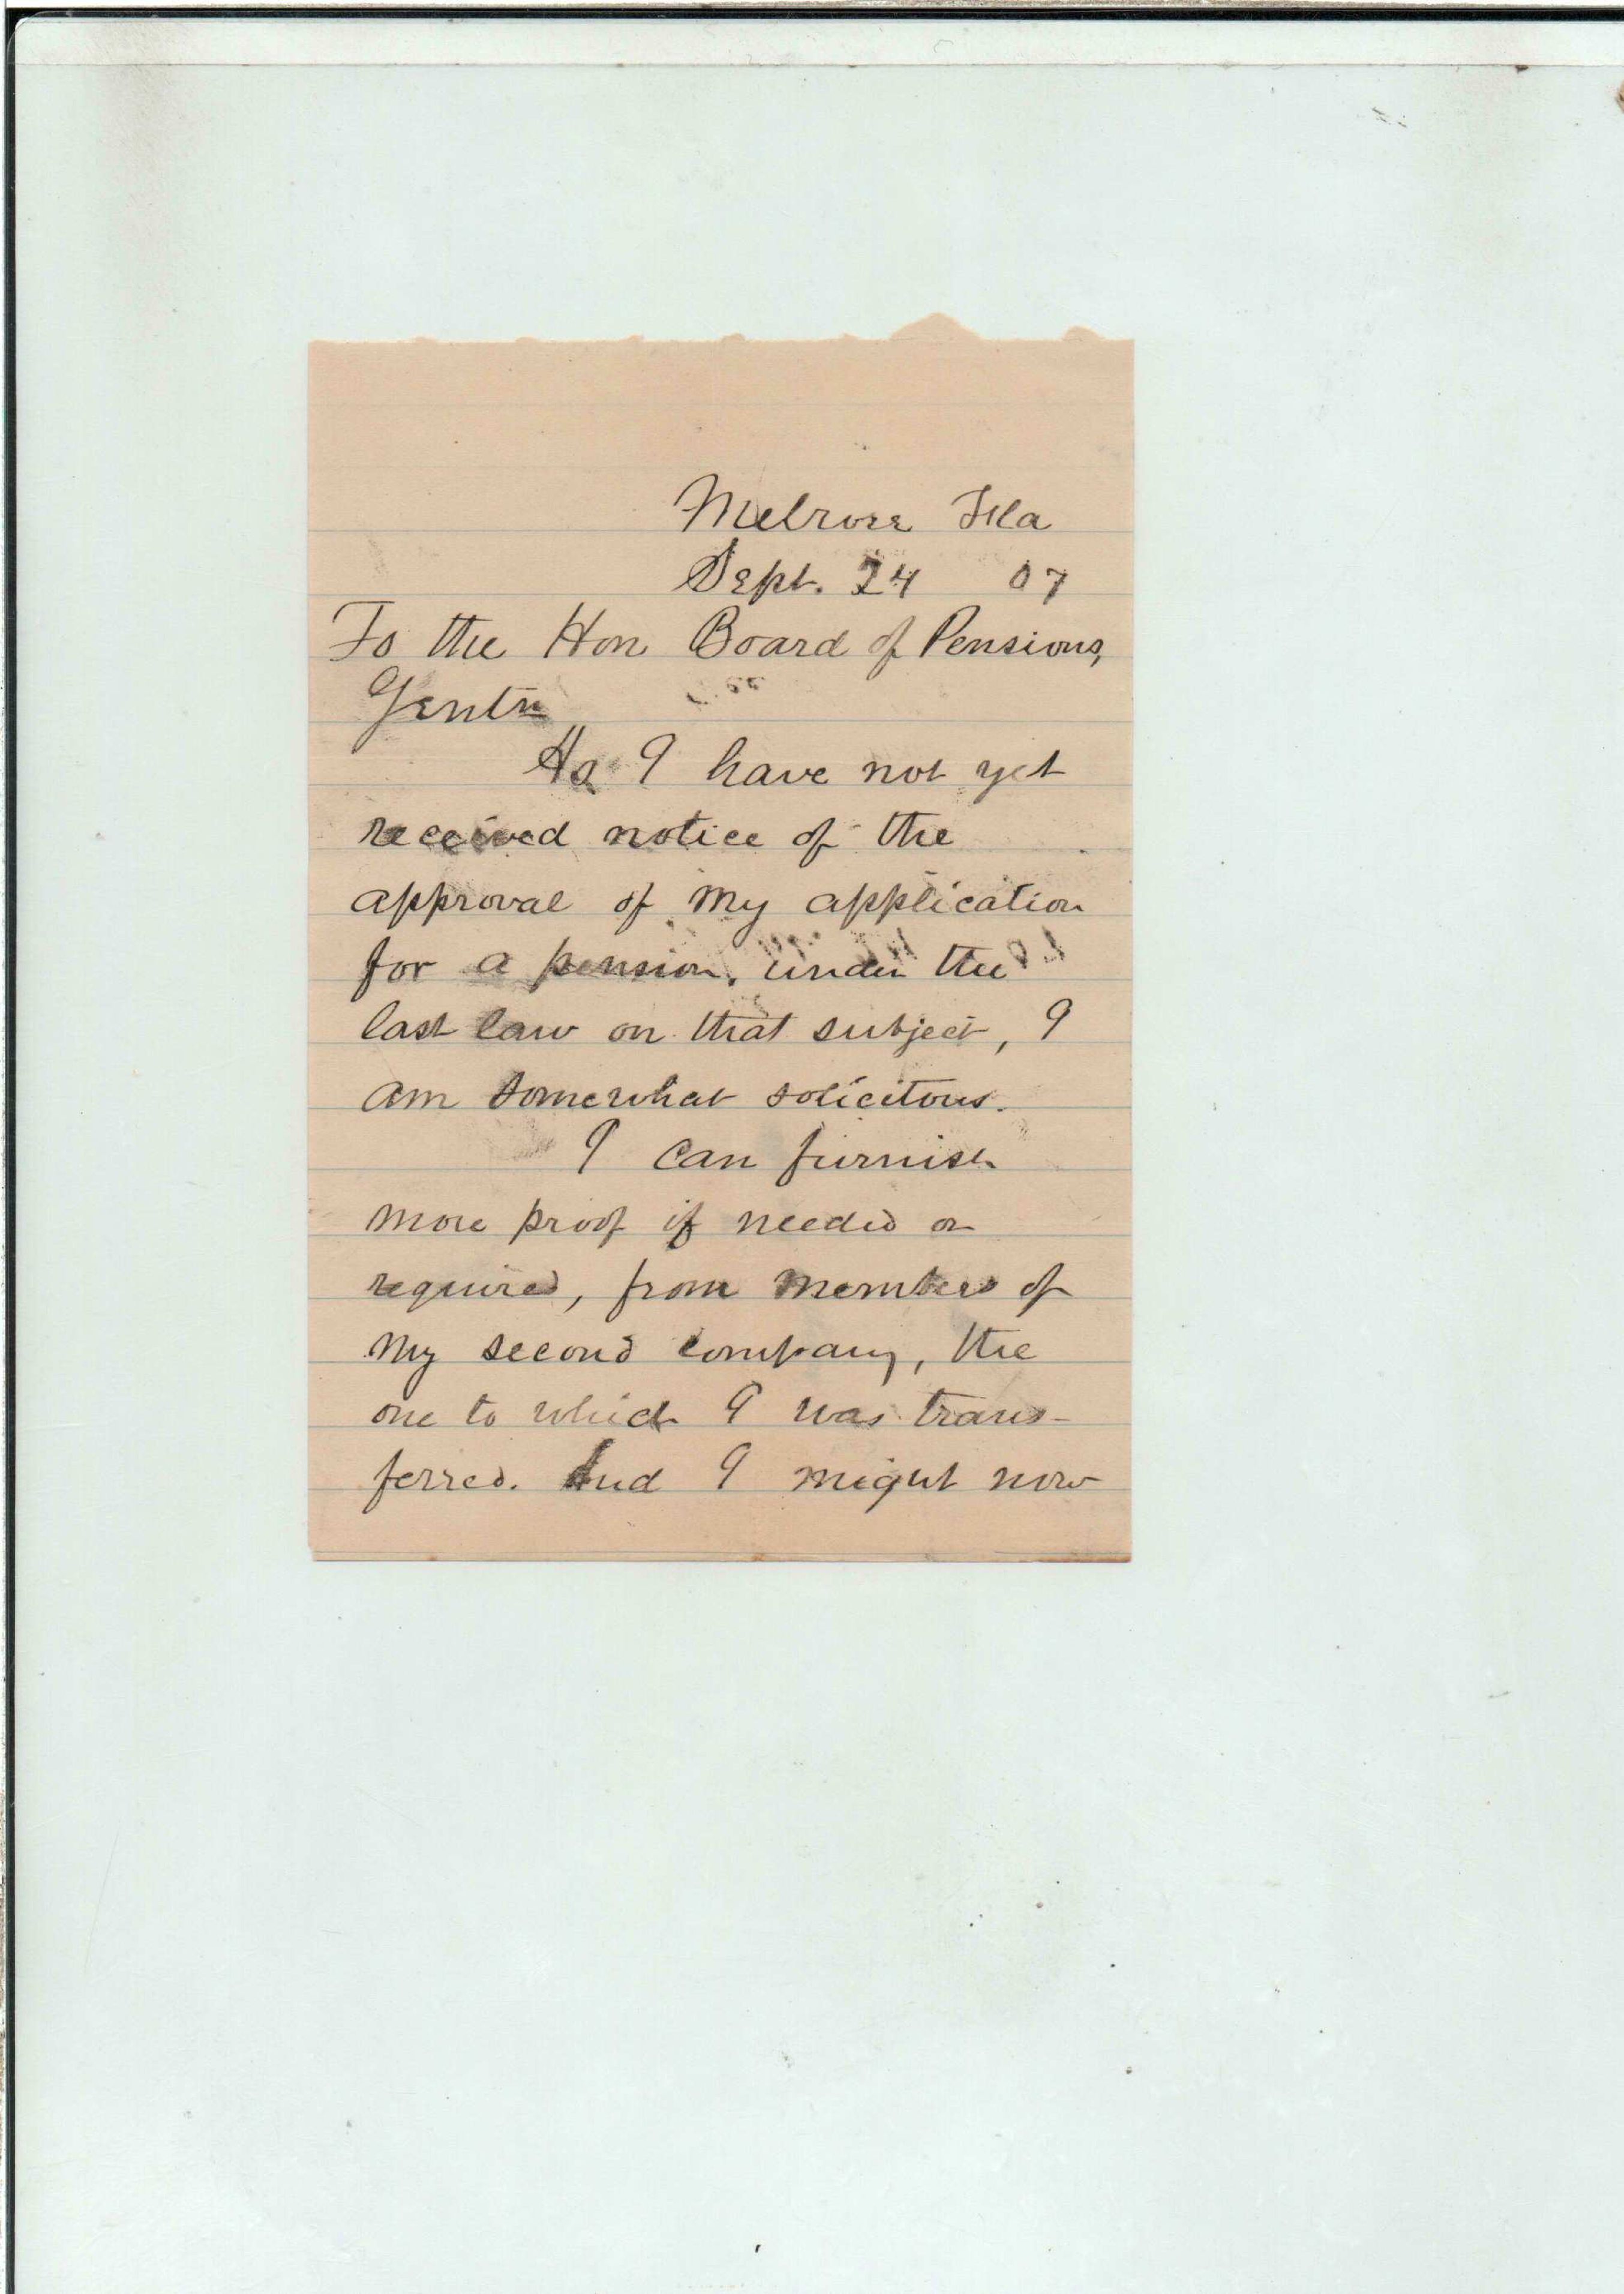 Melrose Fla
Sept. 24 07
To the Hon Board of Pensions,
Gentn
As I have not yet
received notice of the
approval of my application
for a pension, under the
last law on that subject, I
am somewhat solicitous.
I can furnish
more proof if needed or
required, from members of
my second company, the
one to which I was trans-
ferred. And I might now